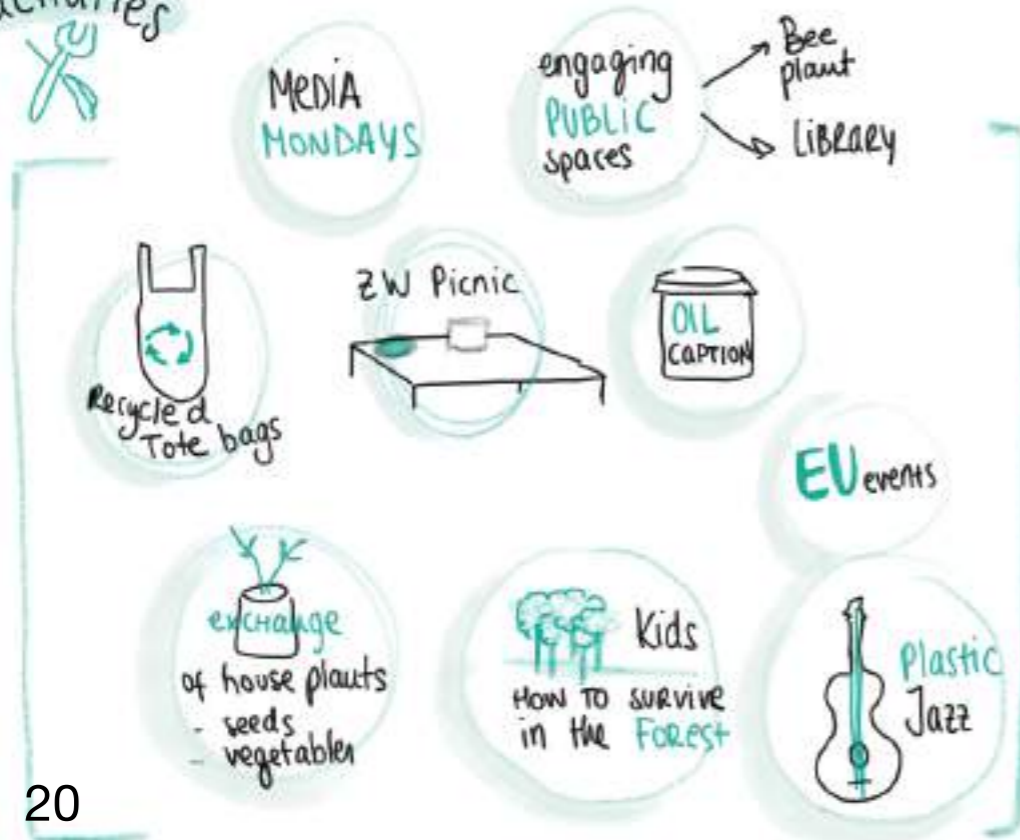 activities
MEDIA
MONDAYS
engaging
PUBLIC
spaces
Bee
plant
LIBRARY
Recycled
Tote bags
ZW Picnic
OIL
CAPTION
EU events
exchange
of house plants
- seeds
- vegetables
Kids
HOW TO SURVIVE
in the FOREST
Plastic
Jazz
20